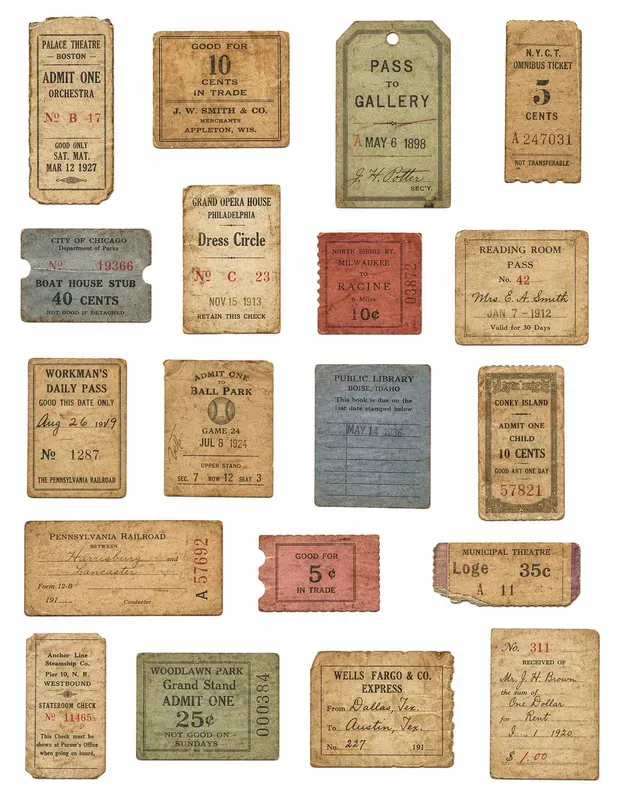 PALACE THEATRE
— BOSTON —
ADMIT ONE
ORCHESTRA
No B 17
GOOD ONLY
SAT. MAT.
MAR 12 1927
GOOD FOR
10
CENTS
IN TRADE
J. W. SMITH & CO.
MERCHANTS
APPLETON, WIS.
PASS
TO
GALLERY
A MAY 6 1898
J. H. Potter
SEC'Y.
N.Y.C.T.
OMNIBUS TICKET
5
CENTS
A 247031
NOT TRANSFERABLE
CITY OF CHICAGO
Department of Parks
No 19366
BOAT HOUSE STUB
40 CENTS
NOT GOOD IF DETACHED
GRAND OPERA HOUSE
PHILADELPHIA
Dress Circle
No C 23
NOV 15 1913
RETAIN THIS CHECK
NORTH SHORE RY.
MILWAUKEE
TO
RACINE
6 Miles
10¢
03872
READING ROOM
PASS
No. 42
Mrs. E. A. Smith
JAN 7 - 1912
Valid for 30 Days
WORKMAN'S
DAILY PASS
GOOD THIS DATE ONLY
Aug 26 1919
No 1287
THE PENNSYLVANIA RAILROAD
ADMIT ONE
TO
BALL PARK
GAME 24
JUL 8 1924
UPPER STAND
SEC. 7 ROW 12 SEAT 3
PUBLIC LIBRARY
BOISE, IDAHO
This book is due on the
last date stamped below
MAY 14 1936
CONEY ISLAND
ADMIT ONE
CHILD
10 CENTS
GOOD ANY ONE DAY
57821
PENNSYLVANIA RAILROAD
BETWEEN
Harrisburg and
Lancaster
Form 12-B
191 Conductor
A 57692
GOOD FOR
5¢
IN TRADE
MUNICIPAL THEATRE
Loge 35c
A 11
Anchor Line
Steamship Co.
Pier 10, N. R.
WESTBOUND
STATEROOM CHECK
No 11465
This Check must be
shown at Purser's Office
when going on board.
WOODLAWN PARK
Grand Stand
ADMIT ONE
25¢
NOT GOOD ON
SUNDAYS
000384
WELLS FARGO & CO.
EXPRESS
From Dallas, Tex.
To Austin, Tex.
No. 227 191
No. 311
RECEIVED OF
Mr. J. H. Brown
the sum of
One Dollar
for Rent
1 1920
$ 1.00